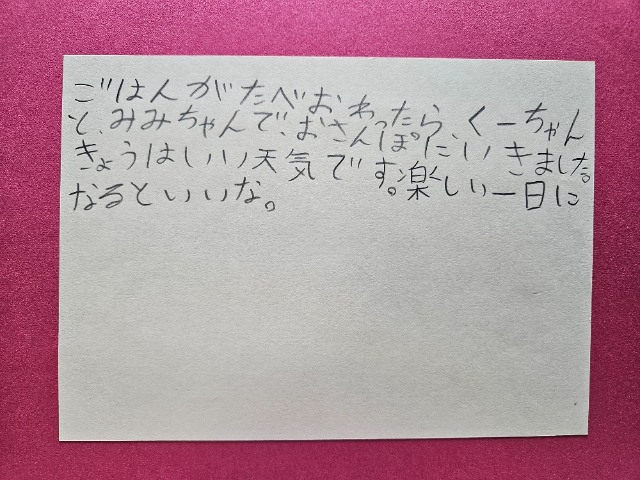 ごはんがたべおわったら、くーちゃん
と、みみちゃんで、おさんぽに、いきました。
きょうはいい天気です。楽しい一日に
なるといいな。